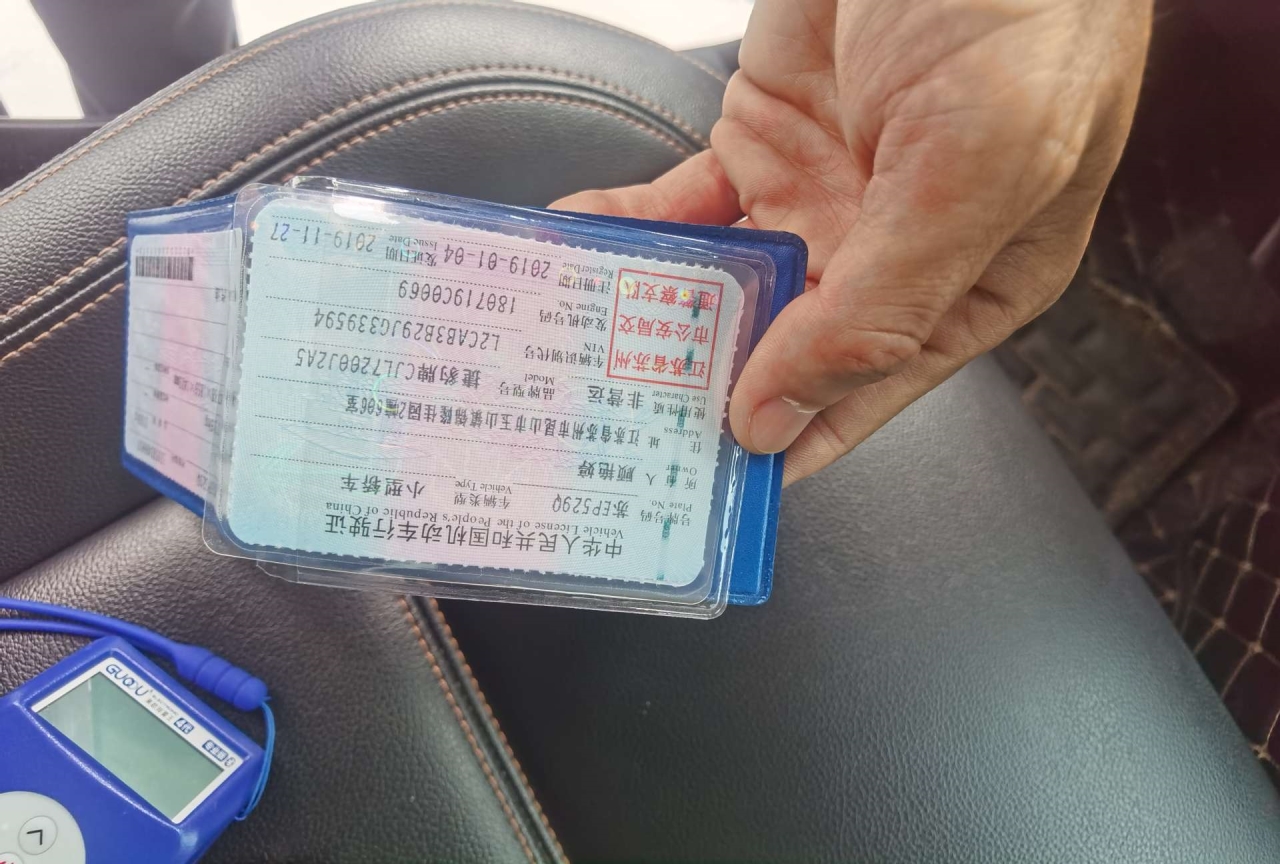 中华人民共和国机动车行驶证
Vehicle License of the People's Republic of China
号牌号码 苏EP529Q 车辆类型 小型轿车
Plate No. Vehicle Type
所有人 顾艳婷
Owner
住址 江苏省苏州市昆山市玉山镇锦隆佳园2幢606室
Address
使用性质 非营运 品牌型号 捷豹牌CJL7200J2A5
Use Character Model
车辆识别代号 L2CAB3B29JG339594
VIN
发动机号码 180719C0069
Engine No.
注册日期 2019-01-04 发证日期 2019-11-27
Register Date Issue Date
江苏省苏州
市公安局交
通警察支队
GUOOU
4代